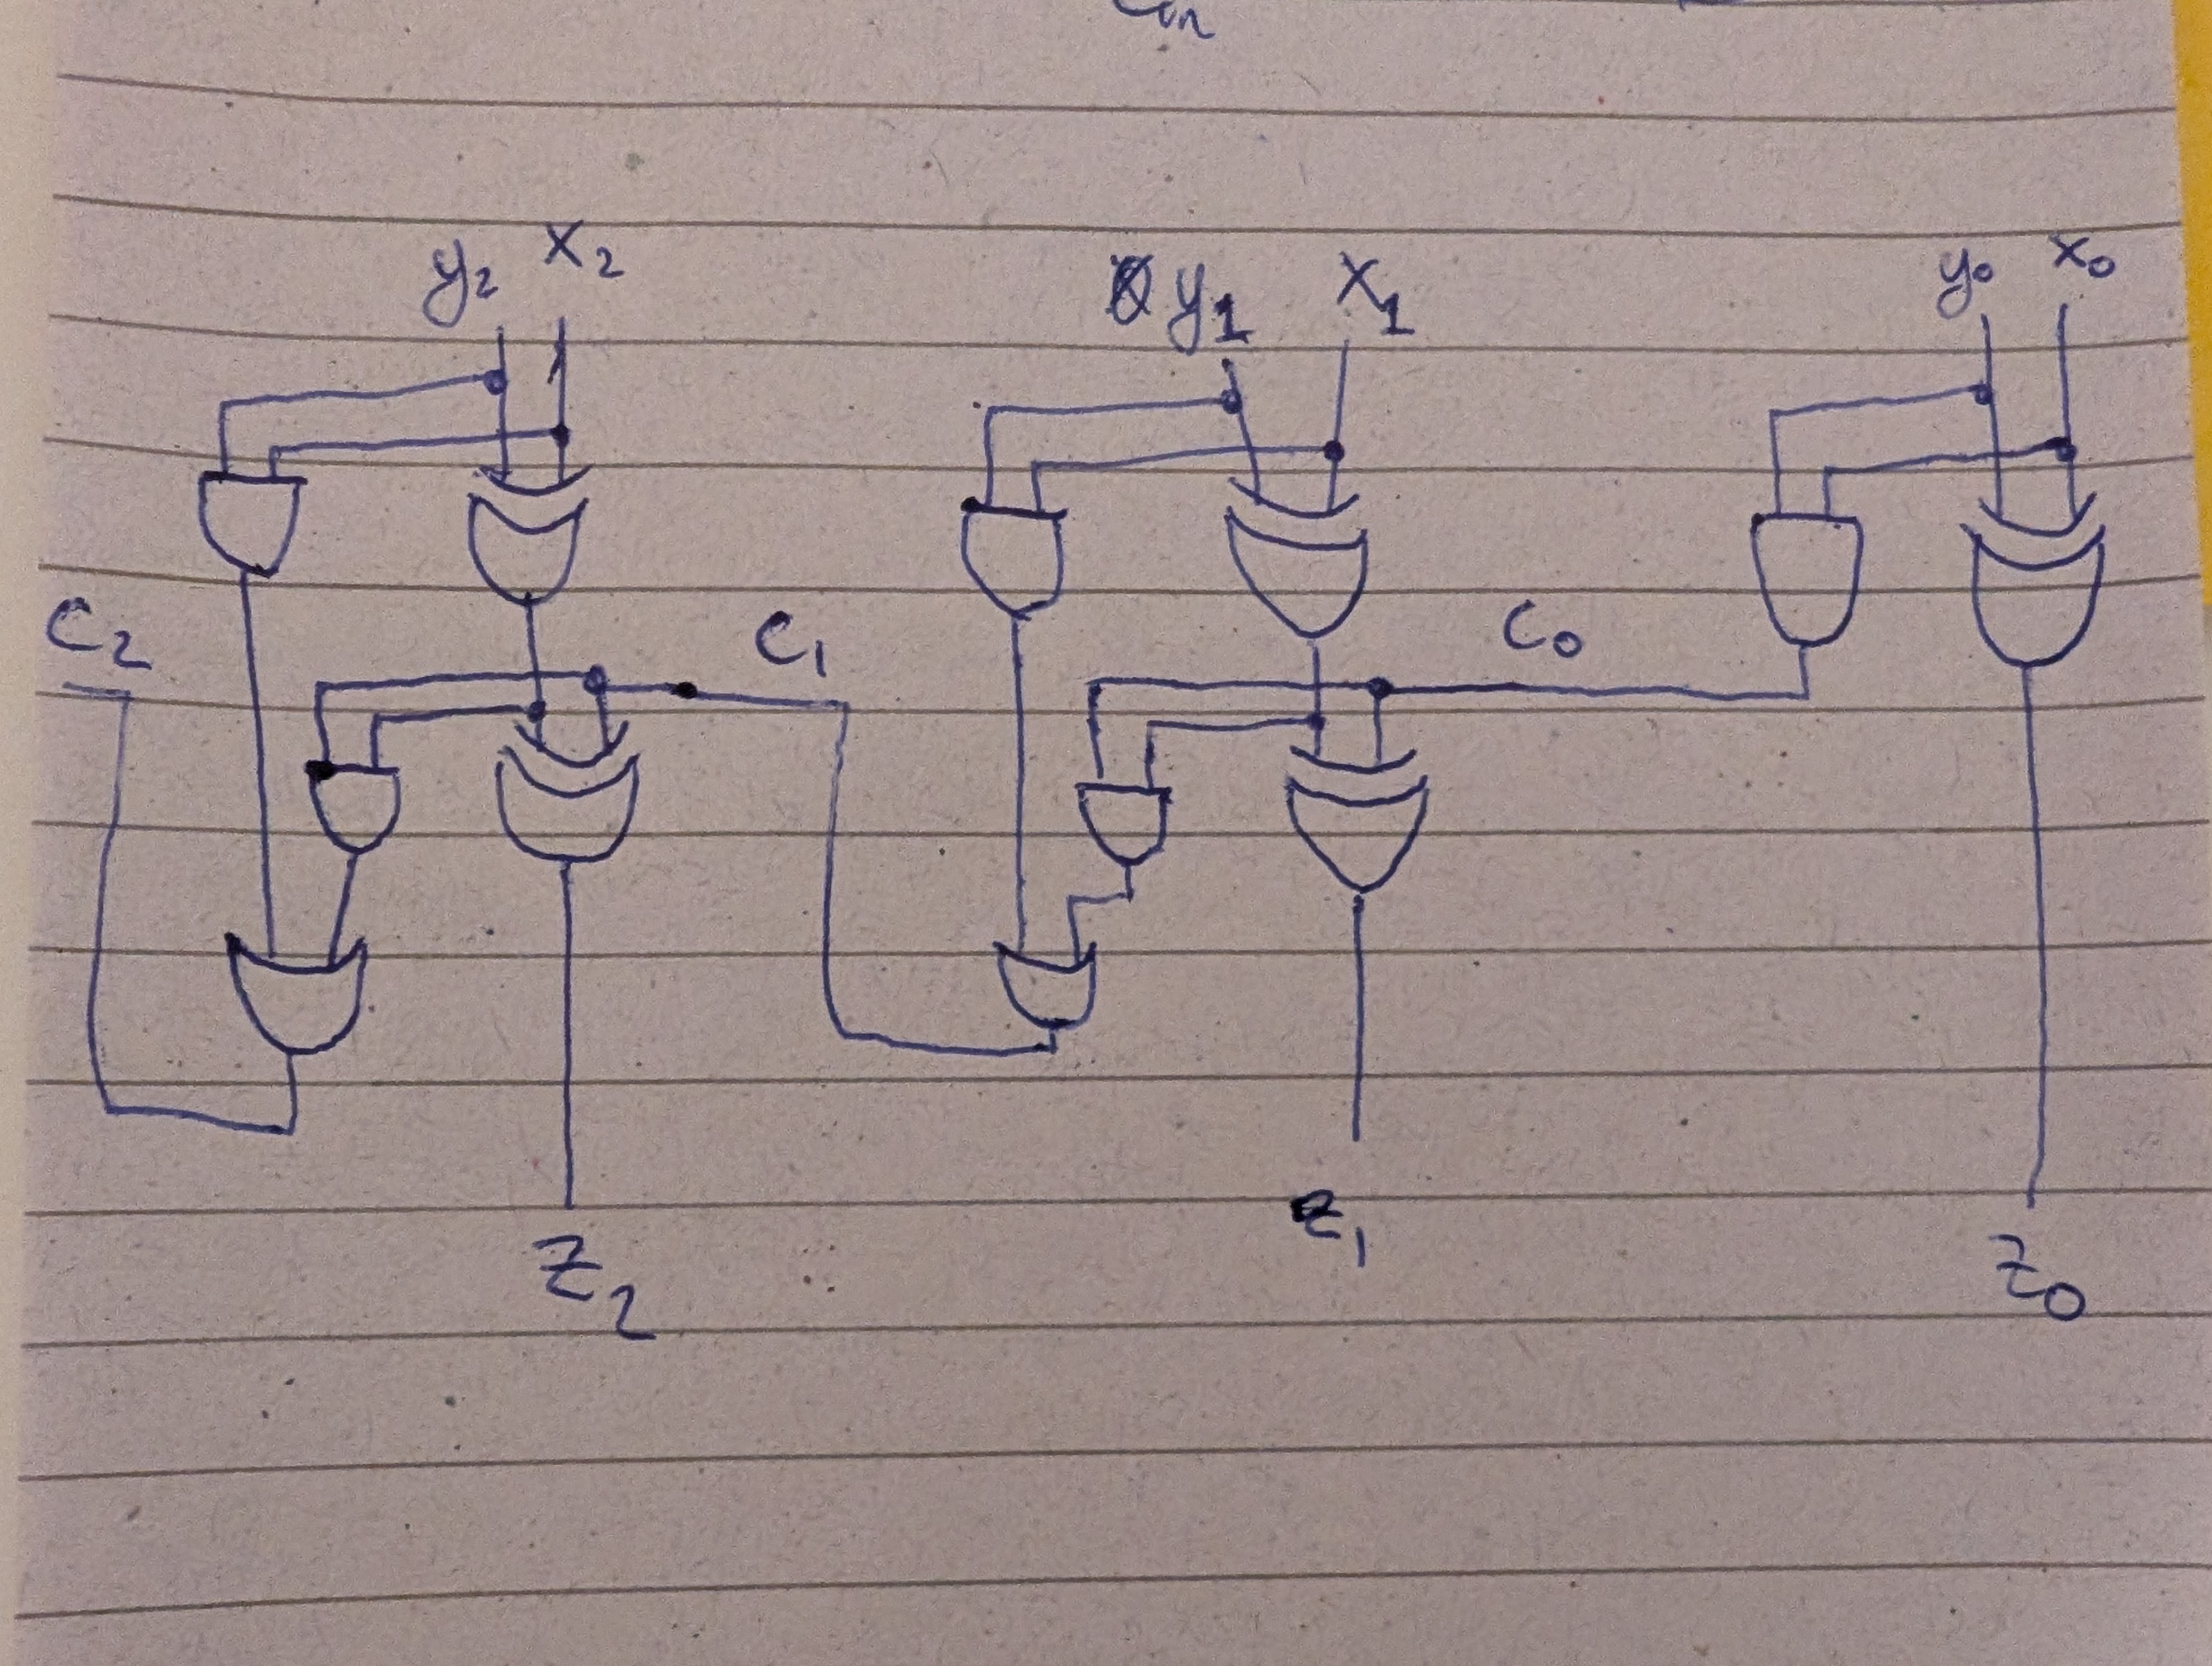 Cin
y2 x2 y1 x1 y0 x0
C2 C1 C0
Z2 Z1 Z0